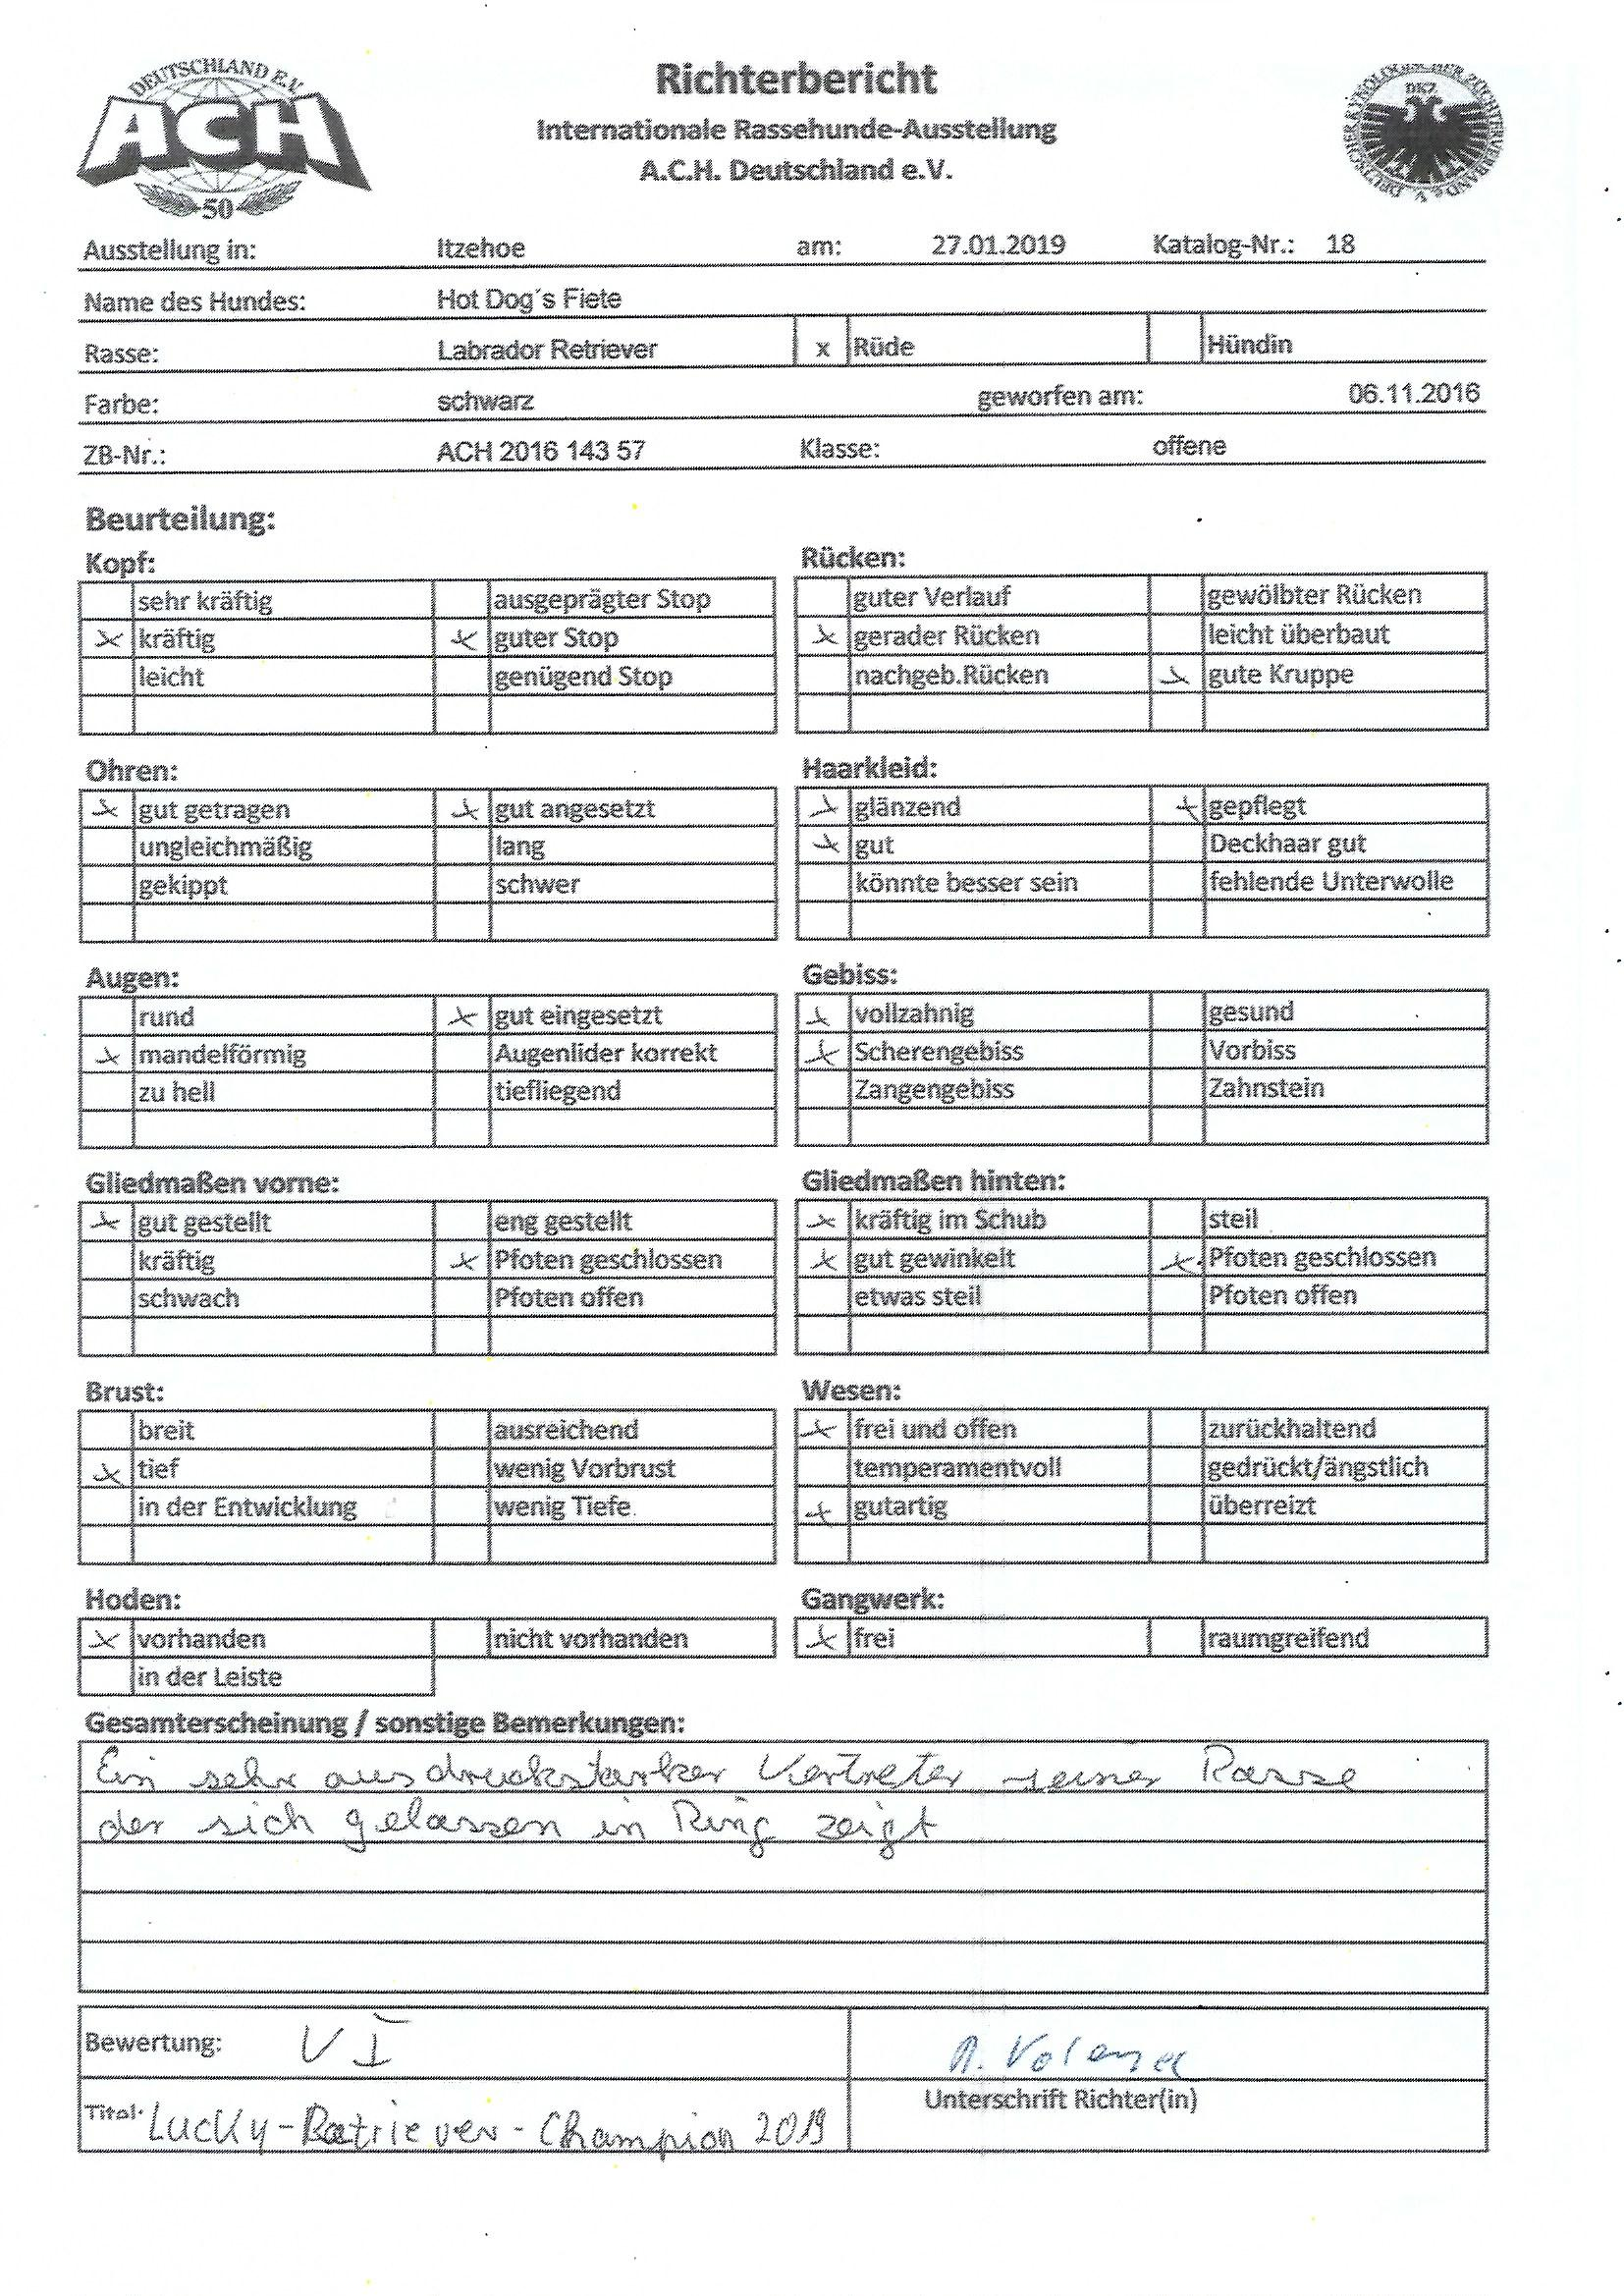 DEUTSCHLAND E.V.
ACH
50
Richterbericht
Internationale Rassehunde-Ausstellung
A.C.H. Deutschland e.V.
DKZ
DEUTSCHER KYNOLOGISCHER ZÜCHTERVERBAND e.V.
Ausstellung in: Itzehoe am: 27.01.2019 Katalog-Nr.: 18
Name des Hundes: Hot Dog´s Fiete
Rasse: Labrador Retriever x Rüde Hündin
Farbe: schwarz geworfen am: 06.11.2016
ZB-Nr.: ACH 2016 143 57 Klasse: offene
Beurteilung:
Kopf:
sehr kräftig ausgeprägter Stop
x kräftig x guter Stop
leicht genügend Stop
Rücken:
guter Verlauf gewölbter Rücken
x gerader Rücken leicht überbaut
nachgeb.Rücken x gute Kruppe
Ohren:
x gut getragen x gut angesetzt
ungleichmäßig lang
gekippt schwer
Haarkleid:
x glänzend x gepflegt
x gut Deckhaar gut
könnte besser sein fehlende Unterwolle
Augen:
rund x gut eingesetzt
x mandelförmig Augenlider korrekt
zu hell tiefliegend
Gebiss:
x vollzahnig gesund
x Scherengebiss Vorbiss
Zangengebiss Zahnstein
Gliedmaßen vorne:
x gut gestellt eng gestellt
kräftig x Pfoten geschlossen
schwach Pfoten offen
Gliedmaßen hinten:
x kräftig im Schub steil
x gut gewinkelt x Pfoten geschlossen
etwas steil Pfoten offen
Brust:
breit ausreichend
x tief wenig Vorbrust
in der Entwicklung wenig Tiefe
Wesen:
x frei und offen zurückhaltend
temperamentvoll gedrückt/ängstlich
x gutartig überreizt
Hoden:
x vorhanden nicht vorhanden
in der Leiste
Gangwerk:
x frei raumgreifend
Gesamterscheinung / sonstige Bemerkungen:
Ein sehr ausdruckstarker Vertreter seiner Rasse
der sich gelassen in Ring zeigt
Bewertung: V I
Unterschrift Richter(in)
Titel: Lucky-Retriever-Champion 2019